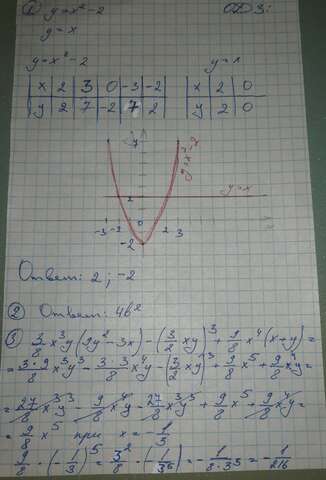 ① y=x²-2 ОДЗ:
y=x
y=x²-2 y=x
x 2 3 0 -3 -2 x 2 0
y 2 7 -2 7 2 y 2 0
y
y=x²-2
y=x
2
0
-3 -2 2 3
-2
Ответ: 2; -2
② Ответ: 4b²
③ 3/8 x³y(9y²-3x) - (3/2 xy)³ + 9/8 x⁴(x+y) =
= 3·9/8 x³y³ - 3·3/8 x⁴y - (3/2 xy)³ + 9/8 x⁵ + 9/8 x⁴y =
= 27/8 x³y³ - 9/8 x⁴y - 27/8 x³y³ + 9/8 x⁵ + 9/8 x⁴y =
= 9/8 x⁵ при x = -1/3
9/8 · (-1/3)⁵ = 3²/8 · (-1/3⁵) = -1/8·3³ = -1/216